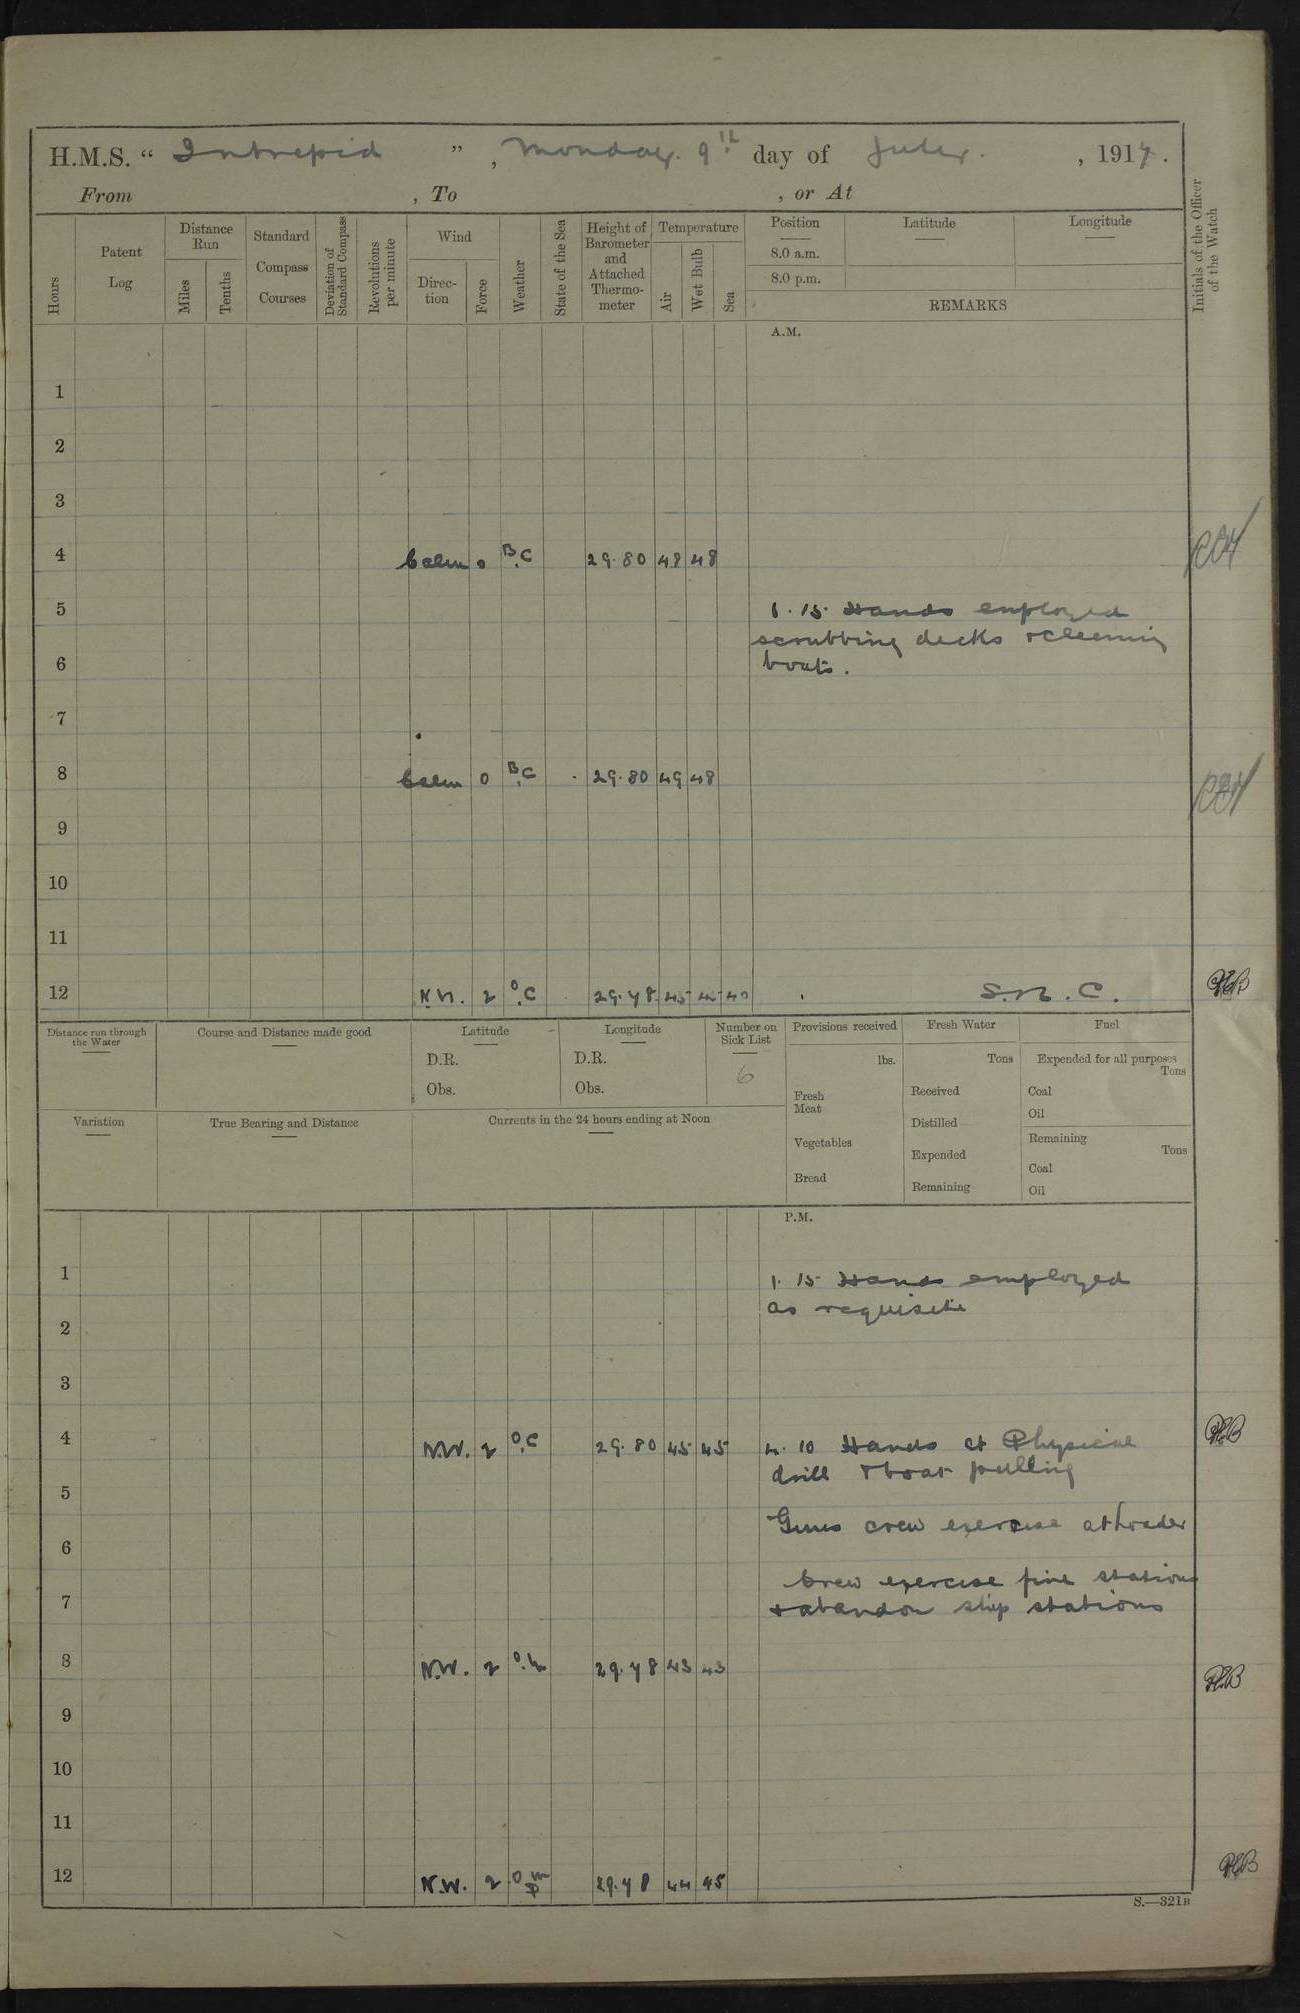 H.M.S. “ Intrepid ” , Monday. 9th day of July. , 1917.
From , To , or At
Hours
Patent Log
Distance Run
Miles
Tenths
Standard Compass Courses
Deviation of Standard Compass
Revolutions per minute
Wind
Direc-tion
Force
Weather
State of the Sea
Height of Barometer and Attached Thermo-meter
Temperature
Air
Wet Bulb
Sea
Position
8.0 a.m.
8.0 p.m.
Latitude
Longitude
REMARKS
Initials of the Officer of the Watch
A.M.
1
2
3
4 Calm 0 B.C 29.80 48 48
5 1.15 Hands employed
scrubbing decks & cleaning
6 boats.
7
8 Calm 0 B.C 29.80 49 48
9
10
11
12 2 O.C 29.78 45 45 40 S.N.C. PEB
Distance run through the Water
Course and Distance made good
Latitude
D.R.
Obs.
Longitude
D.R.
Obs.
Number on Sick List
6
Provisions received
lbs.
Fresh Meat
Vegetables
Bread
Fresh Water
Tons
Received
Distilled
Expended
Remaining
Fuel
Expended for all purposes
Tons
Coal
Oil
Remaining
Tons
Coal
Oil
Variation
True Bearing and Distance
Currents in the 24 hours ending at Noon
P.M.
1 1.15 Hands employed
as requisite
2
3
4 NW. 2 O.C 29.80 45 45 4.10 Hands at Physical PEB
drill & boat pulling
5
Guns crew exercise at loader
6
Crew exercise fire stations
7 & abandon ship stations
8 N.W. 2 29.78 43 43 PEB
9
10
11
12 N.W. 2 29.78 44 45 PEB
S.—321B